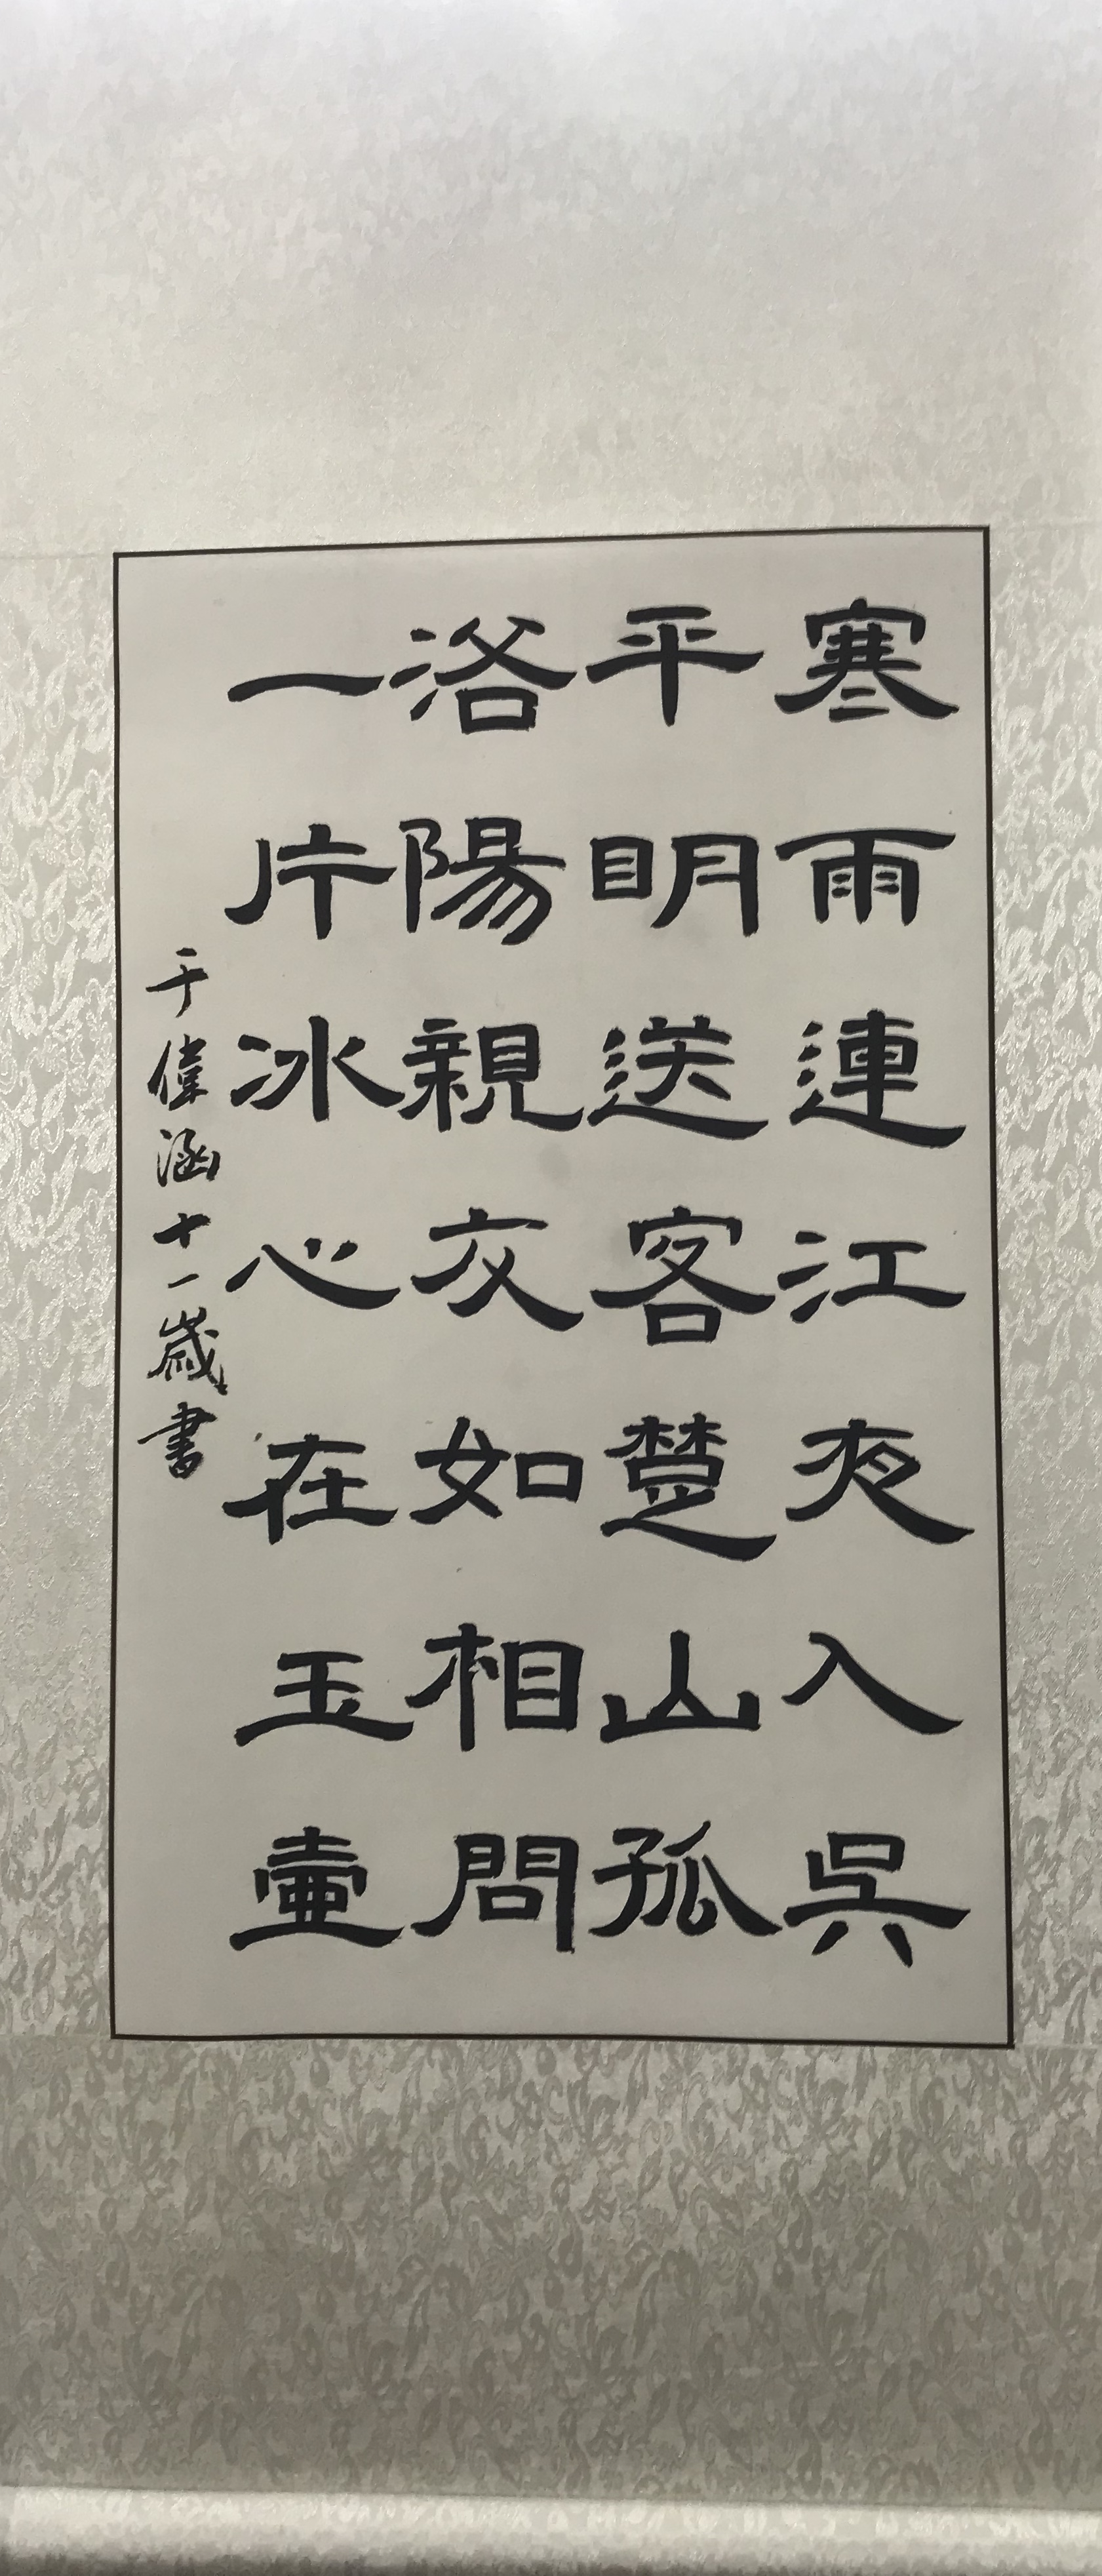 寒雨連江夜入吳
平明送客楚山孤
洛陽親友如相問
一片冰心在玉壺
于偉涵十一歲書